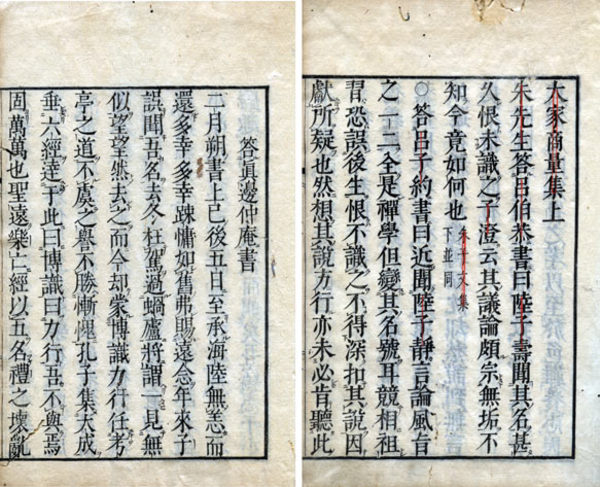 大家商量集上
朱先生答呂伯恭書曰陸子壽聞其名甚
久恨未識之子澄云其議論頗宗無垢不
知今竟如何也朱子文集下並同
○答呂子約書曰近聞陸子靜言論風旨
之一二全是禪學但變其名號耳競相祖
習恐誤後生恨不識之不得深扣其說因
獻所疑也然想其說方行亦未必肯聽此
答眞邊仲庵書
二月朔書上巳後五日至承海陸無恙而
還多幸多幸踈慵如舊弗賜遠念年來子
誤聞吾名去冬枉駕過蝸廬將謂一見無
似望望然去之而今却蒙博識力行任考
亭之道不虞之譽不勝慚愧孔子集大成
垂六經達于此曰博識曰力行吾不與焉
固萬萬也聖遠樂亡經以五名禮之壞亂